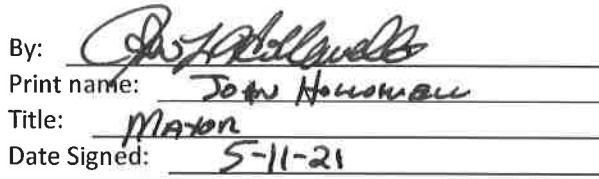 By:
Print name: John Hollowell
Title: Mayor
Date Signed: 5-11-21